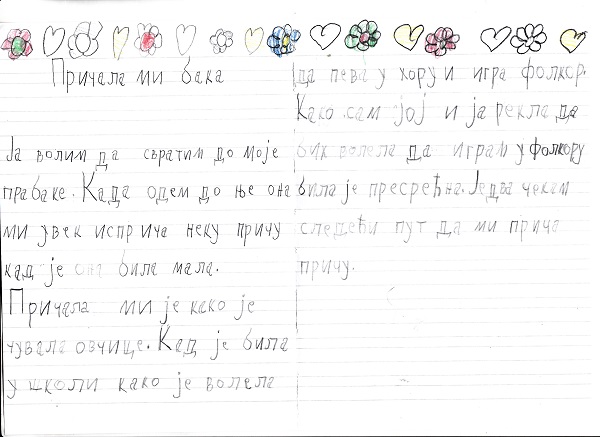 Причала ми бака
Ја волим да свратим до моје
прабаке. Када одем до ње она
ми увек исприча неку причу
кад је она била мала.
Причала ми је како је
чувала овчице. Кад је била
у школи како је волела
да пева у хору и игра фолкор.
Како сам јој и ја рекла да
бих волела да играм у фолкору
била је пресрећна. Једва чекам
следећи пут да ми прича
причу.